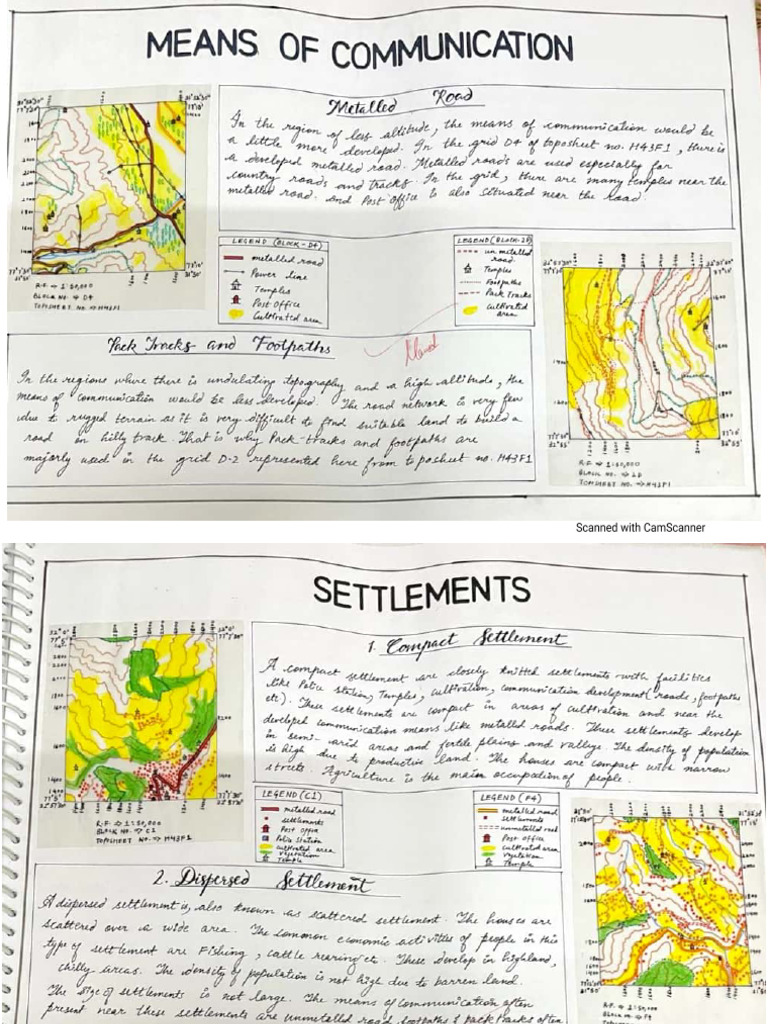 MEANS OF COMMUNICATION
Metalled Road
In the region of less altitude, the means of communication would be
a little more developed. In the grid D4 of toposheet no. H43F1, there is
a developed metalled road. Metalled roads are used especially for
country roads and tracks. In the grid, there are many temples near the
metalled road. and Post Office is also situated near the road.
R.F ⇒ 1:50,000
BLOCK NO. ⇒ D4
TOPOSHEET NO. ⇒ H43F1
LEGEND (BLOCK-D4)
metalled road
Power line
Temples
Post Office
Cultivated area
LEGEND (BLOCK-2D)
unmetalled
road
Temples
Footpaths
Pack Tracks
cultivated
area
Pack Tracks and Footpaths
In the regions where there is undulating topography and a high altitude, the
means of communication would be less developed. The road network is very few
due to rugged terrain as it is very difficult to find suitable land to build a
road on hilly track. That is why Pack-tracks and footpaths are
majorly used in the grid D-2 represented here from toposheet no. H43F1
R.F ⇒ 1:50,000
BLOCK NO. ⇒ 2D
TOPOSHEET NO. ⇒ H43F1
Scanned with CamScanner
SETTLEMENTS
1. Compact Settlement
A compact settlement are closely knitted settlements with facilities
like Police Station, Temples, cultivation, communication development (roads, footpaths
etc). These settlements are compact in areas of cultivation and near the
developed communication means like metalled roads. These settlements develop
in semi-arid areas and fertile plains and valleys. The density of population
is high due to productive land. The houses are compact with narrow
streets. Agriculture is the main occupation of people.
R.F ⇒ 1:50,000
BLOCK NO. ⇒ C1
TOPOSHEET NO. ⇒ H43F1
LEGEND (C1)
metalled road
settlements
Post Office
Police Station
cultivated area
vegetation
Temple
LEGEND (F4)
metalled road
settlements
unmetalled road
Post Office
cultivated area
vegetation
Temple
2. Dispersed Settlement
A dispersed settlement is, also known as scattered settlement. The houses are
scattered over a wide area. The common economic activities of people in this
type of settlement are Fishing, cattle rearing etc. These develop in highland,
chilly areas. The density of population is not high due to barren land.
The size of settlements is not large. The means of communication often
present near these settlements are unmetalled road, footpaths & pack tracks often
R.F ⇒ 1:50,000
BLOCK NO. ⇒ F4